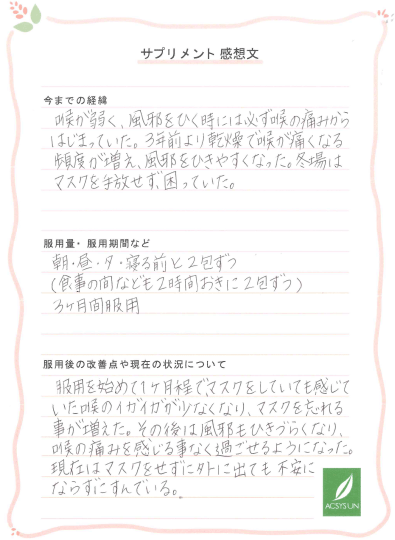 サプリメント 感想文
今までの経緯
喉が弱く、風邪をひく時には必ず喉の痛みから
はじまっていた。3年前より乾燥で喉が痛くなる
頻度が増え、風邪をひきやすくなった。冬場は
マスクを手放せず、困っていた。
服用量・服用期間など
朝・昼・夕・寝る前と2包ずつ
(食事の間なども2時間おきに2包ずつ)
3ヶ月間服用
服用後の改善点や現在の状況について
服用を始めて1ヶ月程で、マスクをしていても感じて
いた喉のイガイガが少なくなり、マスクを忘れる
事が増えた。その後は風邪もひきづらくなり、
喉の痛みを感じる事なく過ごせるようになった。
現在はマスクをせずに外に出ても不安に
ならずにすんでいる。
ACSYSUN